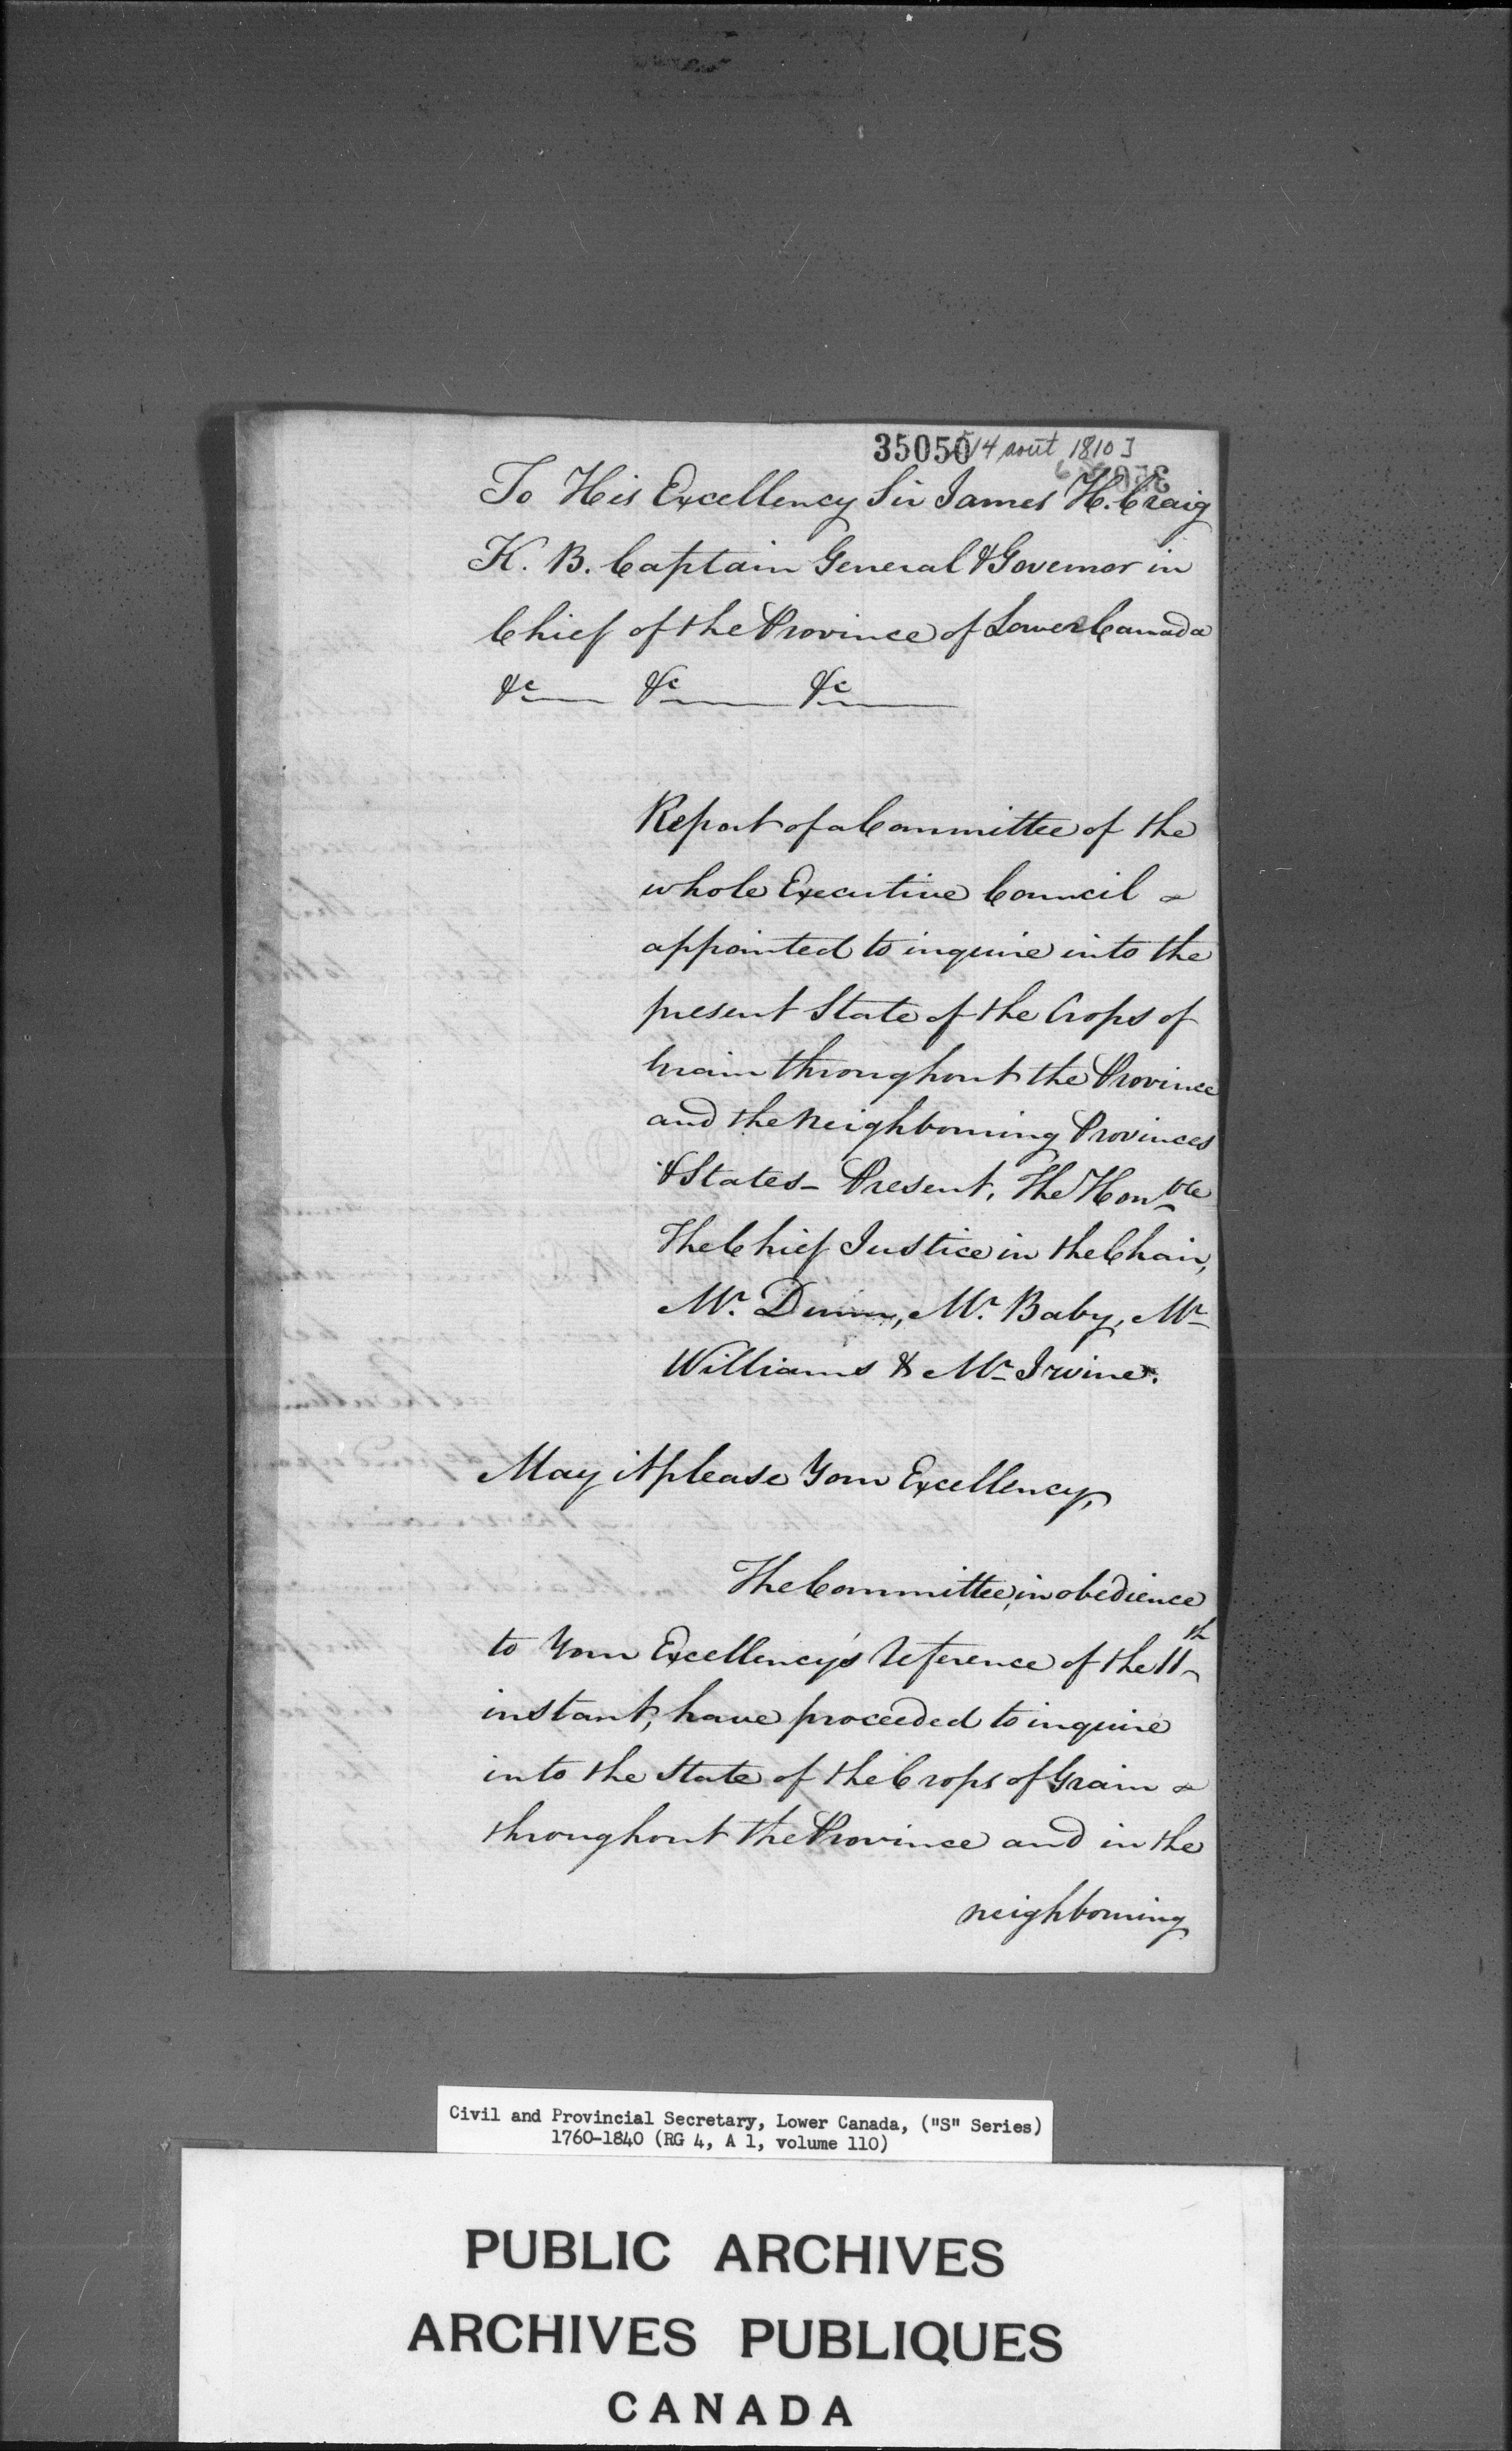 35050 [14 août 1810]
To His Excellency Sir James H. Craig
K. B. Captain General & Governor in
Chief of the Province of Lower Canada
&c &c &c
Report of a Committee of the
whole Executive Council
appointed to inquire into the
present State of the Crops of
Grain throughout the Province
and the Neighbouring Provinces
& States - Present, The Honble
The Chief Justice in the Chair,
Mr. Dunn, Mr. Baby, Mr
Williams & Mr Irvine.
May it please Your Excellency,
The Committee, in obedience
to Your Excellency's reference of the 11th
instant, have proceeded to inquire
into the State of the Crops of Grain
throughout the Province and in the
neighbouring
Civil and Provincial Secretary, Lower Canada, ("S" Series)
1760-1840 (RG 4, A 1, volume 110)
PUBLIC ARCHIVES
ARCHIVES PUBLIQUES
CANADA